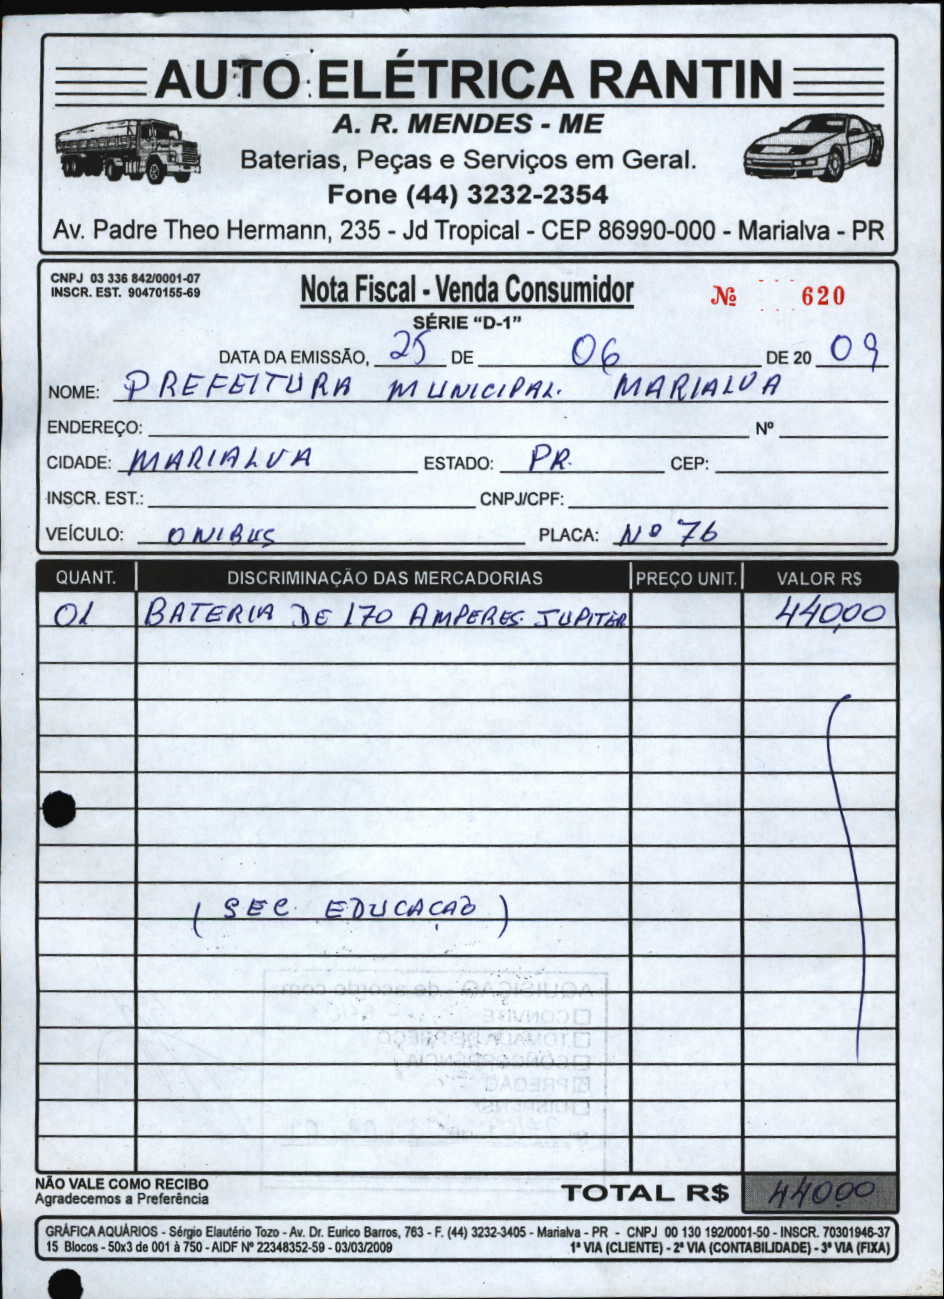 AUTO ELÉTRICA RANTIN
A. R. MENDES - ME
Baterias, Peças e Serviços em Geral.
Fone (44) 3232-2354
Av. Padre Theo Hermann, 235 - Jd Tropical - CEP 86990-000 - Marialva - PR
CNPJ 03 336 842/0001-07
INSCR. EST. 90470155-69
Nota Fiscal - Venda Consumidor
Nº 620
SÉRIE “D-1”
DATA DA EMISSÃO, 25 DE 06 DE 20 09
NOME: PREFEITURA MUNICIPAL. MARIALVA
ENDEREÇO: Nº
CIDADE: MARIALVA ESTADO: PR. CEP:
INSCR. EST.: CNPJ/CPF:
VEÍCULO: ONIBUS PLACA: Nº 76
QUANT. DISCRIMINAÇÃO DAS MERCADORIAS PREÇO UNIT. VALOR R$
01 BATERIA DE 170 AMPERES JUPITER 440,00
( SEC. EDUCAÇÃO )
AQUISIÇÃO - de acordo com:
CONVITE
TOMADA DE PREÇO
CONCORRÊNCIA
PREGÃO
NÃO VALE COMO RECIBO
Agradecemos a Preferência
TOTAL R$ 440,00
GRÁFICA AQUÁRIOS - Sérgio Elautério Tozo - Av. Dr. Eurico Barros, 763 - F. (44) 3232-3405 - Marialva - PR - CNPJ 00 130 192/0001-50 - INSCR. 70301946-37
15 Blocos - 50x3 de 001 à 750 - AIDF Nº 22348352-59 - 03/03/2009
1ª VIA (CLIENTE) - 2ª VIA (CONTABILIDADE) - 3ª VIA (FIXA)